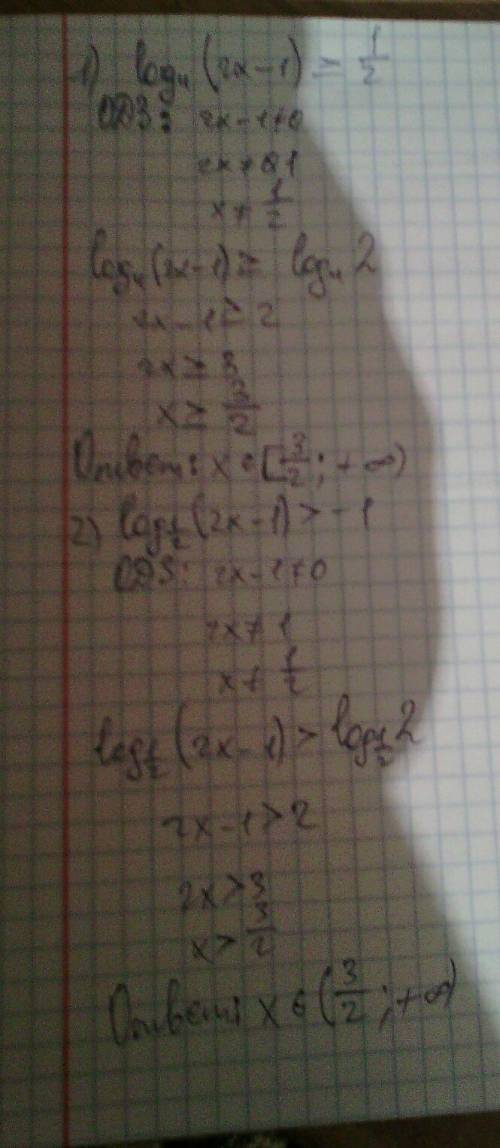 1) log₄(2x-1) ≥ 1/2
ОДЗ: 2x-1≠0
2x≠1
x≠1/2
log₄(2x-1) ≥ log₄2
2x-1≥2
2x≥3
x≥3/2
Ответ: x ∈ [3/2; +∞)
2) log½(2x-1) > -1
ОДЗ: 2x-1≠0
2x≠1
x≠1/2
log½(2x-1) > log½2
2x-1>2
2x>3
x>3/2
Ответ: x ∈ (3/2; +∞)